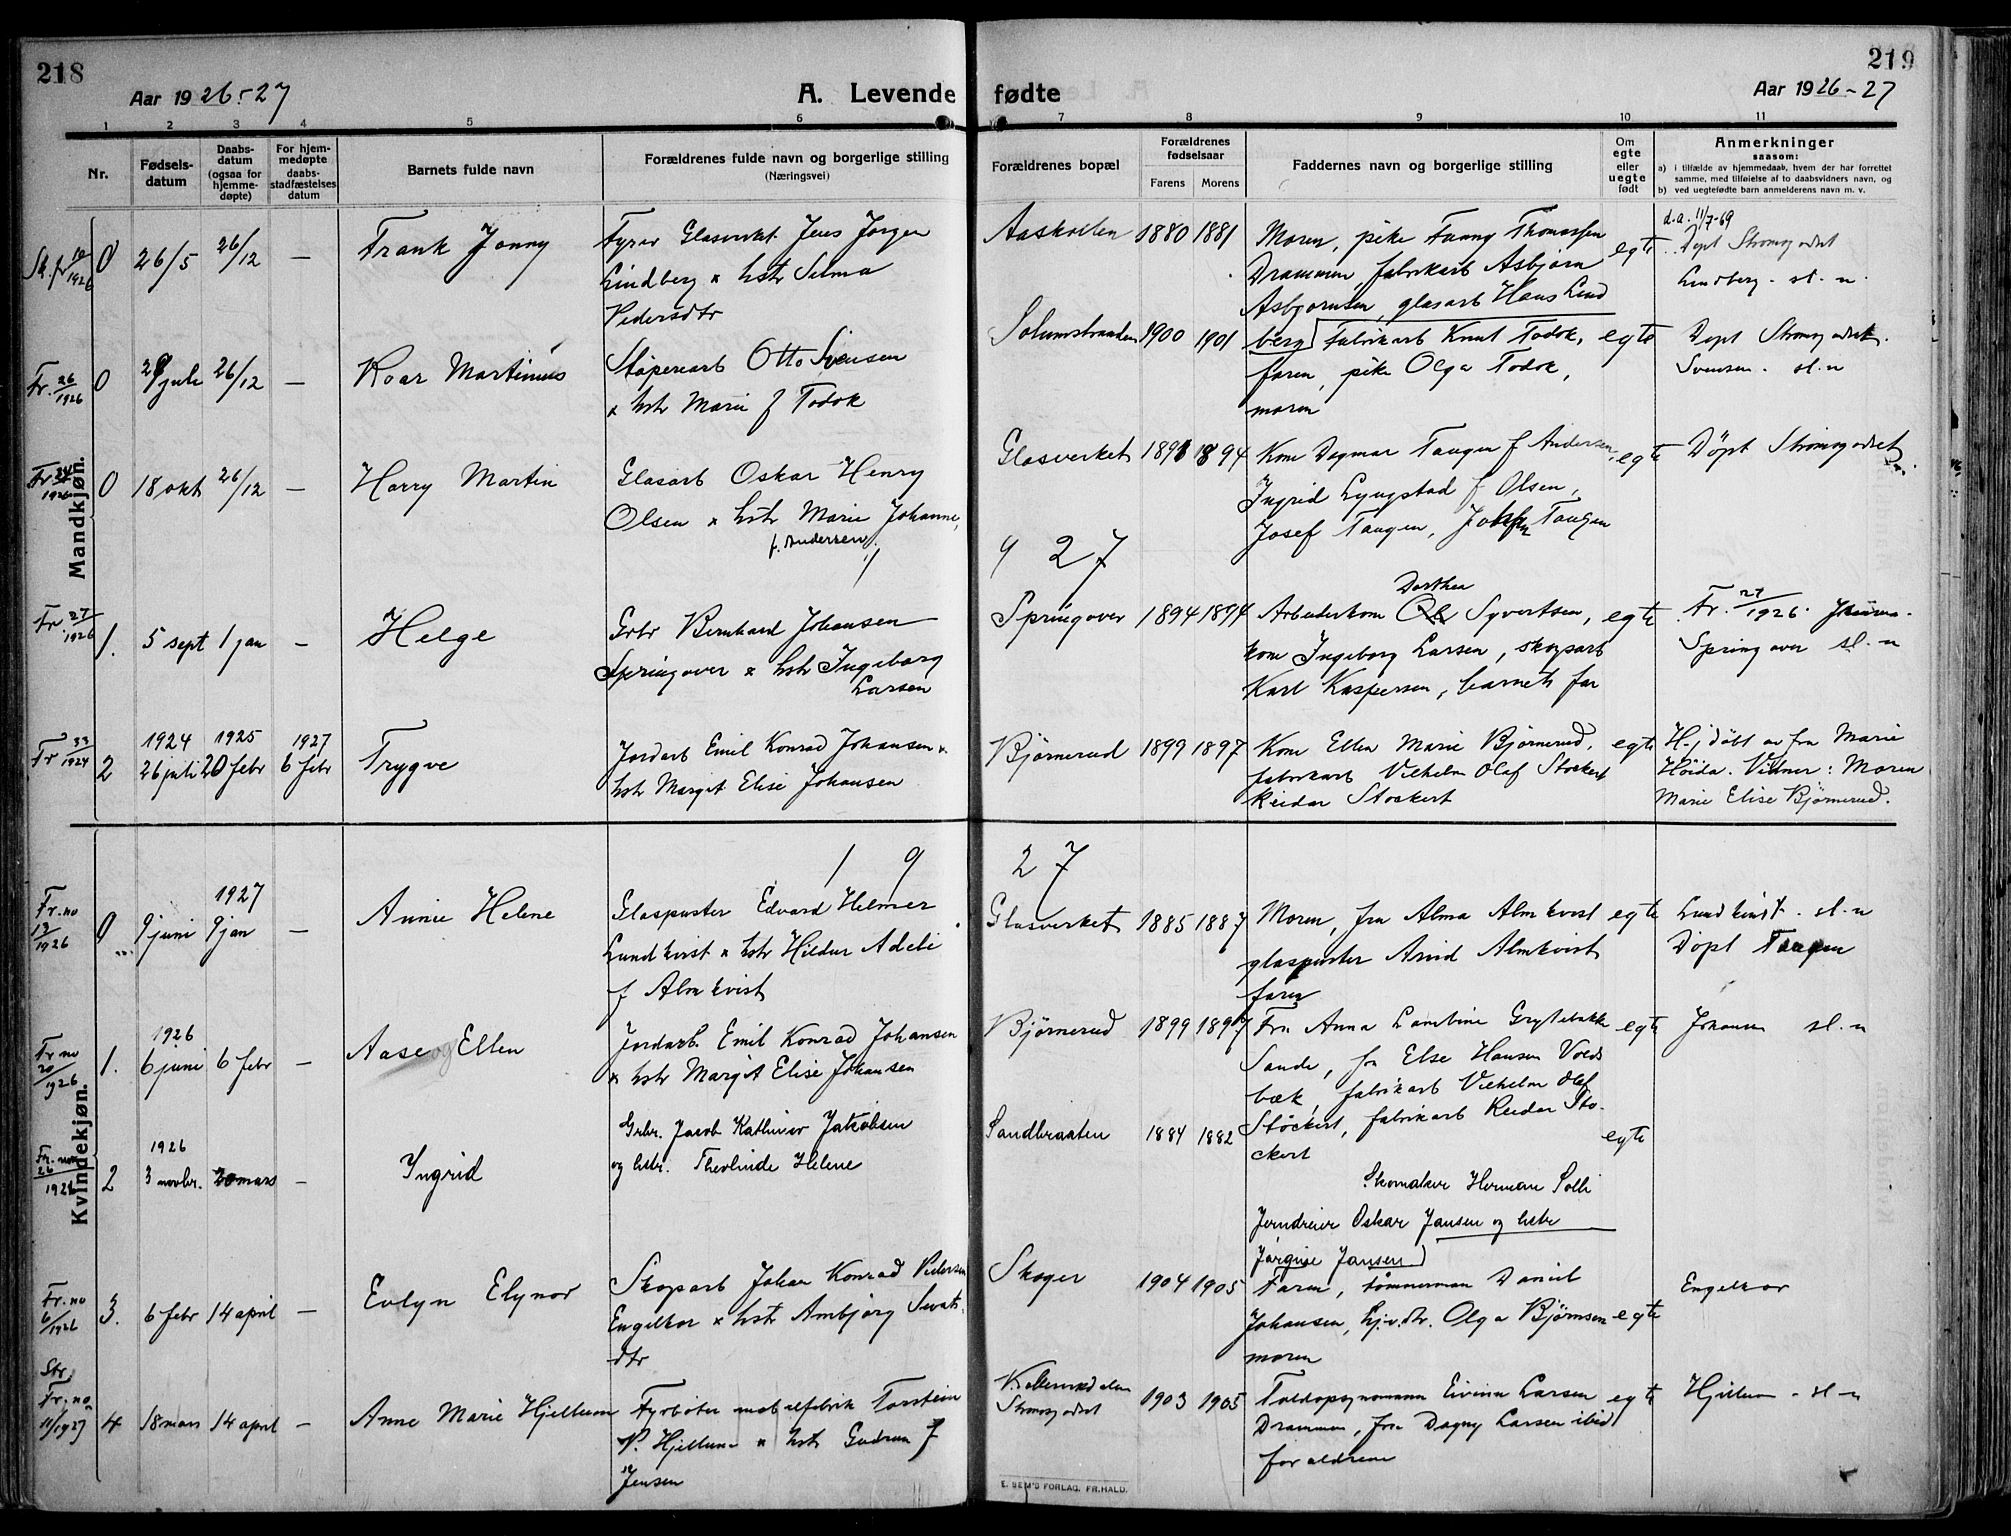 218
Aar 1926-27
A. Levende fødte
219
Aar 1926-27
1 2 3 4 5 6 7 8 9 10 11
Nr.
Fødsels-
datum
Daabs-
datum
(ogsaa for
hjemme-
døpte)
For hjem-
medøpte
daabs-
stadfæstelses
datum
Barnets fulde navn
Forældrenes fulde navn og borgerlige stilling
(Næringsvei)
Forældrenes bopæl
Forældrenes
fødselsaar
Farens
Morens
Faddernes navn og borgerlige stilling
Om
egte
eller
uegte
født
Anmerkninger
saasom:
a) i tilfælde av hjemmedaab, hvem der har forrettet
samme, med tilføielse af to daabsvidners navn, og
b) ved uegtefødte barn anmelderens navn m. v.
Mandkjøn.
0 26/5 26/12 – Frank Jonny
Fyrer Glasverket Jens Jørgen
Lindberg x hstr Selma
Pedersdtr
Aaskollen 1880 1881
Moren, pike Fanny Thomassen
Drammen, fabrikarb Asbjørn
Asbjørnsen, glasarb Hans Lind
berg
egte
d.a. 11/7-69
Døpt Strømsgodset
Lindberg - sl. n.
Fr. 26/1926
0 29 juli 26/12 – Roar Martinius
Støperiarb Otto Svensen
x hstr Marie f Todok
Solumstranden 1900 1901
Fabrikarb Knut Todok,
faren, pike Olga Todok,
moren
egte
Døpt Strømsgodset.
Svensen - sl. n
Fr. 34/1926
0 18 okt 26/12 – Harry Martin
Glasarb Oskar Henry
Olsen x hstr Marie Johanne,
f. Andersen.
Glasverket 1891 1894
Kone Dagmar Tangen f Andersen,
Ingrid Lyngstad f Olsen,
Josef Tangen, Tangen
egte
Døpt Strømsgodset
1 9 27
Fr 27/1926
1. 5 sept 1 jan – Helge
Grbr Bernhard Johansen
Springover x hstr Ingeborg
Larsen
Springover 1894 1894
Dorthea
Arbeiderkone Syvertsen,
kone Ingeborg Larsen, skogsarb
Karl Kaspersen, barnets far
egte
Fr. 27/1926
Springover sl. n
Fr 33/1924
2
1924
26 juli
1925
20 febr
1927
6 febr
Trygve
Jordarb Emil Konrad Johansen x
hstr Margit Elise Johansen
Bjørnerud 1899 1897
Kone Ellen Marie Bjørnerud,
fabrikarb Vilhelm Olaf Stockert
Reidar Stockert
egte
Hjdøbt av fru Marie
Høida. Vidner: Moren
Marie Elise Bjørnerud.
Kvindekjøn.
1 9 27
Fr. no
13/1926
0 9 juni
1927
9 jan – Annie Helene
Glaspuster Edvard Helmer
Lundkvist x hstr Hildur Adele
f Almkvist
Glasverket 1885 1887
Moren, fru Alma Almkvist
glaspuster Arvid Almkvist
faren
egte
Lundkvist - sl. n
Døpt Tangen
Fr no
20/1926
1.
1926
6 juni 6 febr – Aase og Ellen
Jordarb. Emil Konrad Johansen
x hstr Margit Elise Johansen
Bjørnerud 1899 1897
Fru Anna Lambine Grytebakke
Sande, fru Else Hansen Volds
bæk, fabrikarb Vilhelm Olaf
Stöckert, fabrikarb Reidar Sto-
ckert
egte
Johansen sl. n
Fr. no
26/1926
2
1926
3 novbr. 20 mars – Ingrid
Grbr. Jacob Kathinor Jakobsen
og hstr. Theolinde Helene
Sandbraaten 1884 1882
egte
Skomaker Herman Solli
Jerndreier Oskar Jansen og hstr
Jørgine Jansen
Fr. no
6/1926
3. 6 febr 14 april – Evlyn Elynor
Skogarb Johan Konrad Pedersen
Engelkor x hstr Ambjørg Sivats
dtr
Skoger 1904 1905
Faren, tømmermann Daniel
Johansen, hj.v. dtr. Olga Bjørnsen
moren
egte
Engelkor
Str.
Fr. no
11/1927
4 18 mars 14 april – Anne Marie Hjellum
Fyrbøter Torstein
P. Hjellum x hstr Gudrun f
Jensen
Strømsgodset
1903 1905
Toldopsynsmann Eivinn Larsen
Drammen, fru Dagny Larsen ibid
foreldrene
egte
Hjellum - sl - n
E. SEM'S FORLAG. FR.HALD.